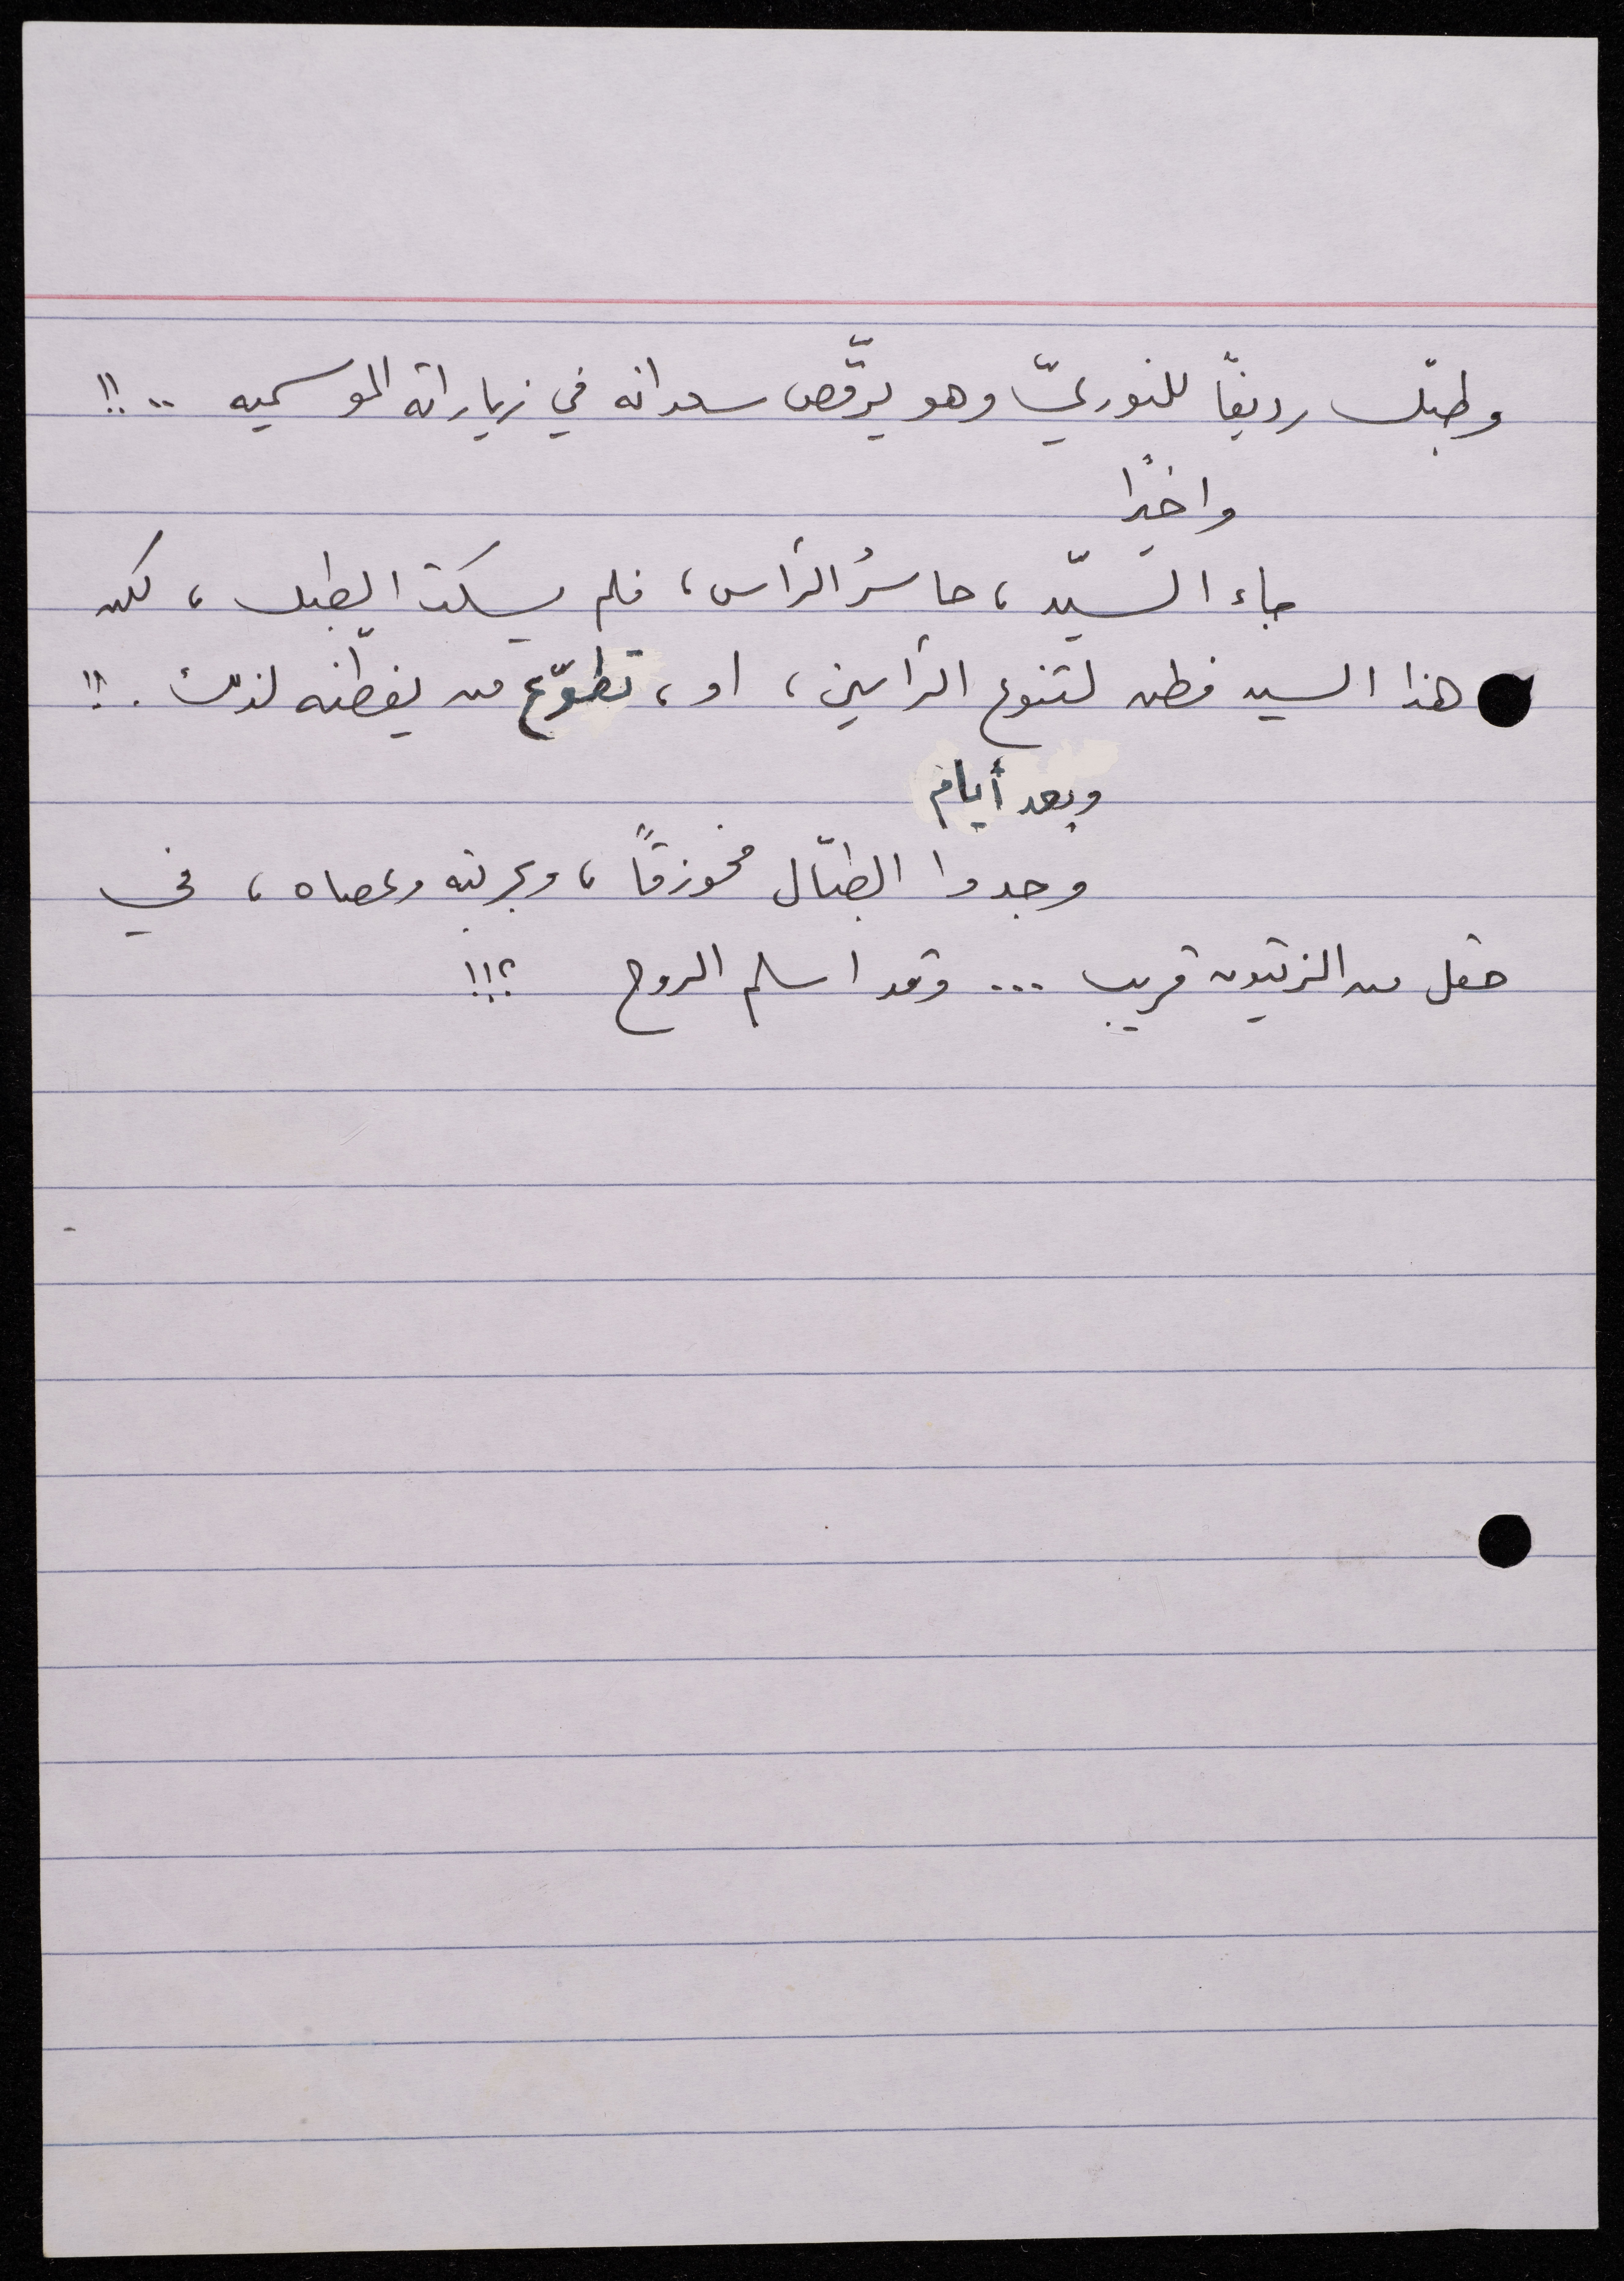 وطبّل رديفاً للنوريّ وهو يرقّص سعدانه في زياراته الموسميه ..!!
واخيرًا
جاء السّيّد ، حاسرُ الرأس ، فلم يسكت الطبل ، لكن
هذا السيد فطن لتنوع الرأسين ، او ، تطوّع من يفطّنه لذلك . !!
وبعد أيام
وجدوا الطبّال مخوزقاً ، وبجرنه وعصاه ، في
حقل من الزيتون قريب ... وقد اسلم الروح ؟!!